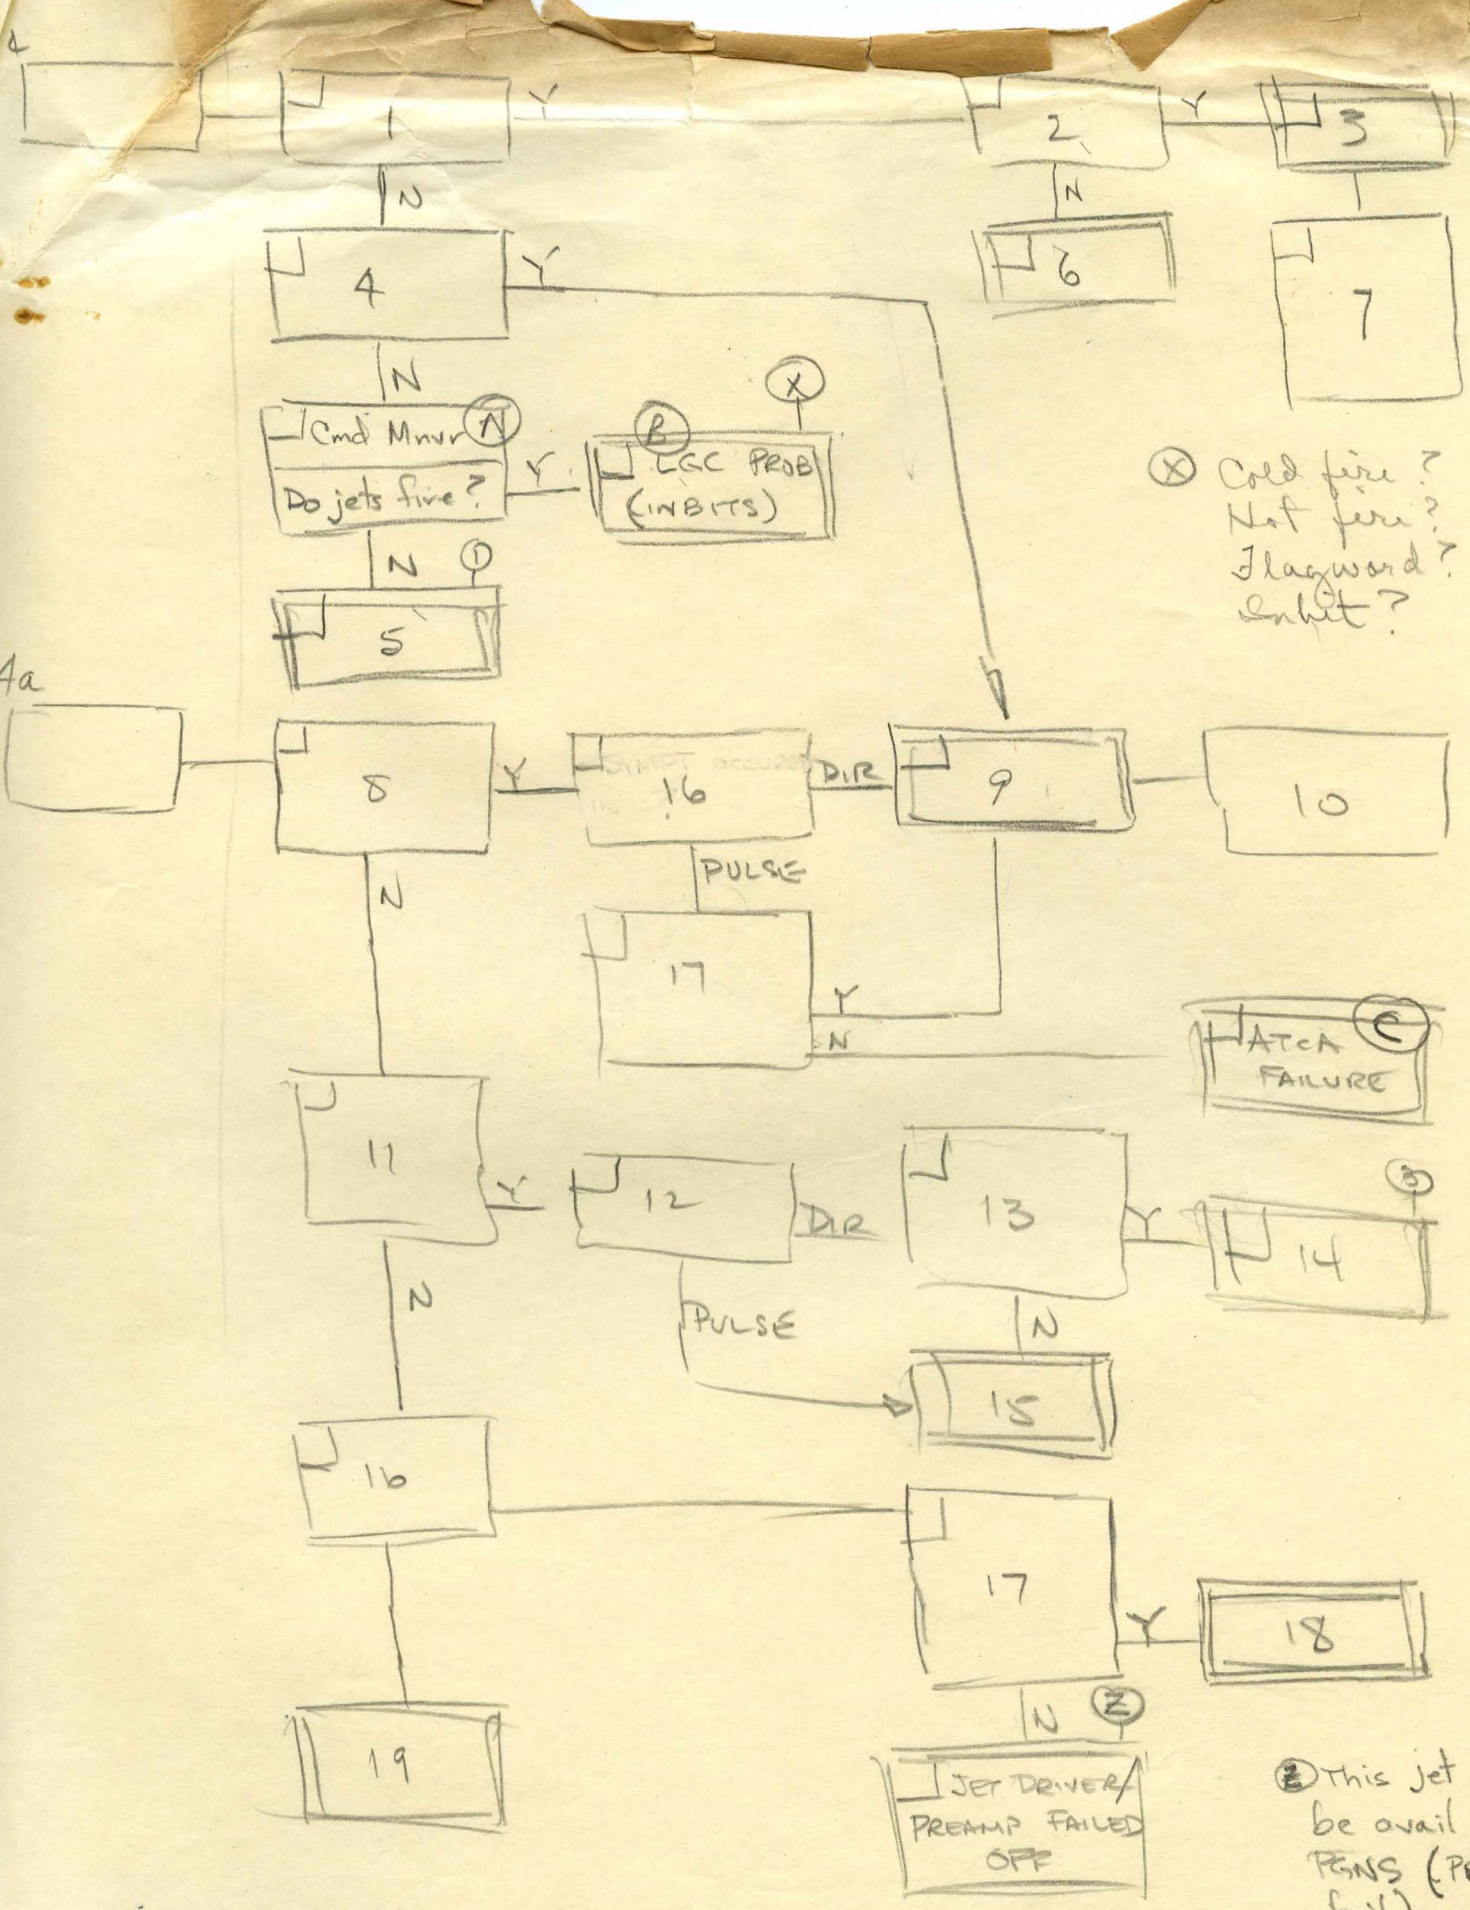 4
1
Y
2
Y
3
N
N
4
Y
6
7
N
X
Cmd Mnvr A
Do jets fire?
Y
B
LGC PROB
(INBITS)
X Cold fire?
Hot fire?
Flagword?
Inbit?
N
1
5
4a
8
Y
SYMPT OCCURED
IN
16
DIR
9
10
N
PULSE
17
Y
N
C
ATCA
FAILURE
11
Y
12
DIR
13
Y
3
14
N
PULSE
N
15
16
17
Y
18
N
Z
19
JET DRIVER/
PREAMP FAILED
OFF
Z This jet
be avail
PGNS (